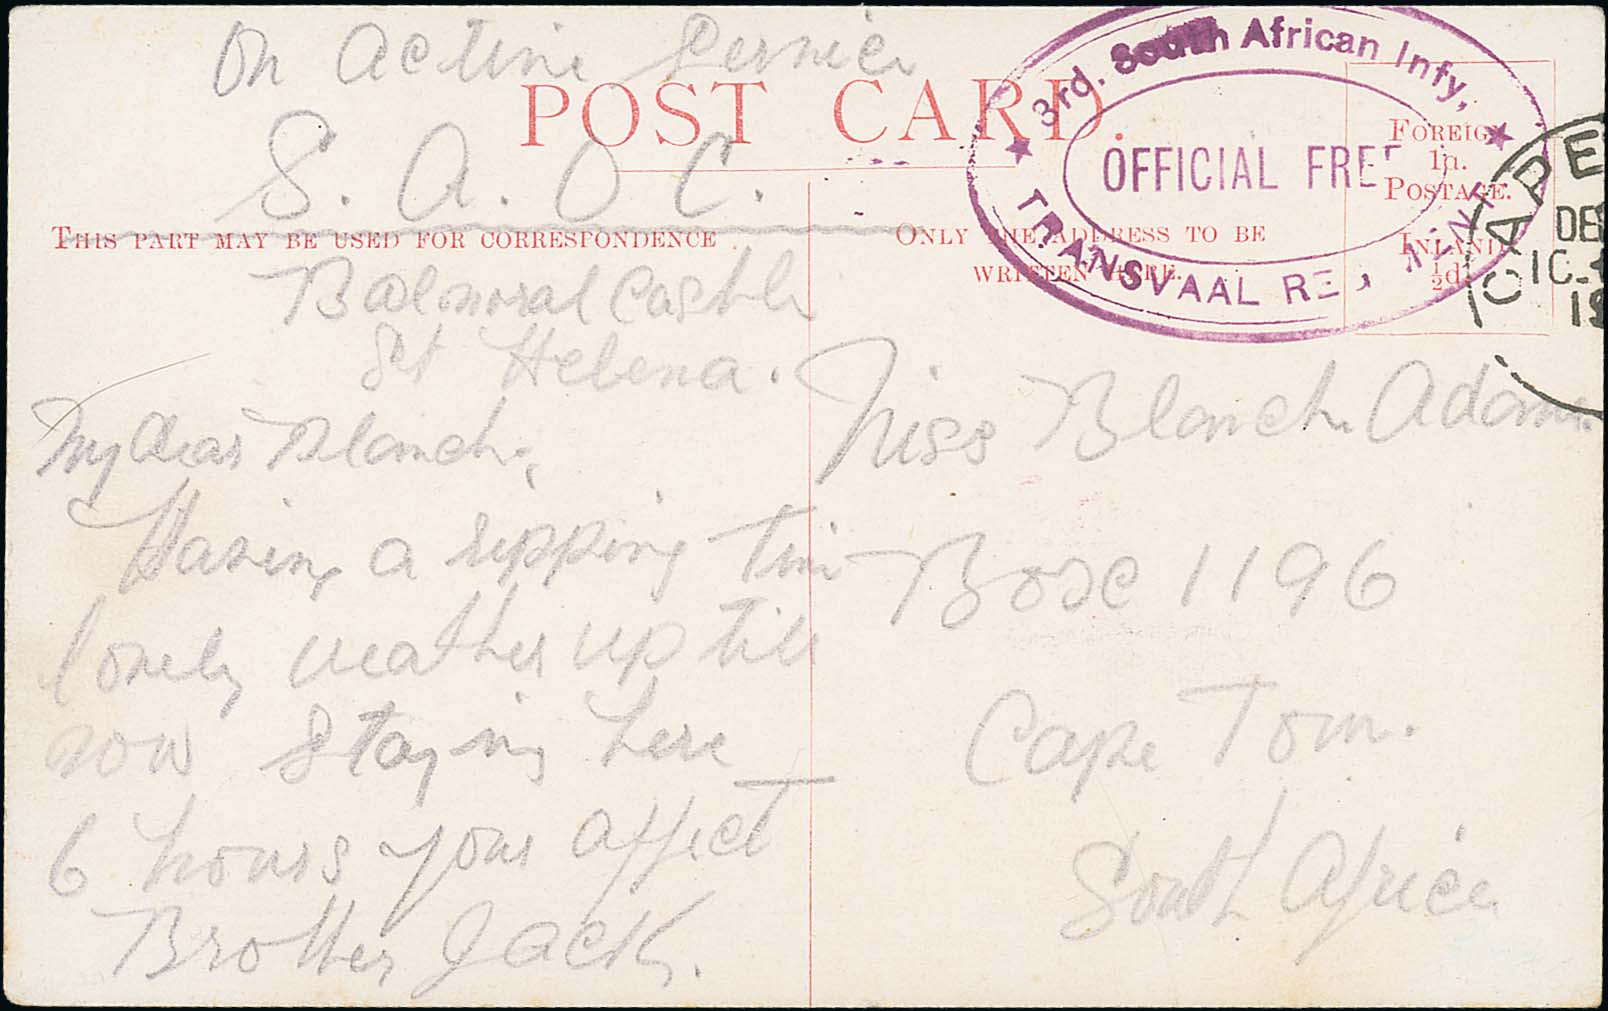 On Active Service
POST CARD.
S. A. O C.
THIS PART MAY BE USED FOR CORRESPONDENCE
Balmoral Castle
St Helena.
My dear Blanche,
Having a ripping time
lovely weather up till
now staying here
6 hours your affect
Brother Jack.
3rd. South African Infy,
OFFICIAL FREE
TRANSVAAL REGIMENT
FOREIGN
1D.
POSTAGE.
INLAND
½d.
ONLY THE ADDRESS TO BE
WRITTEN HERE.
CAPE
DE
10-
19
Miss Blanche Adams.
Box 1196
Cape Town.
South Africa